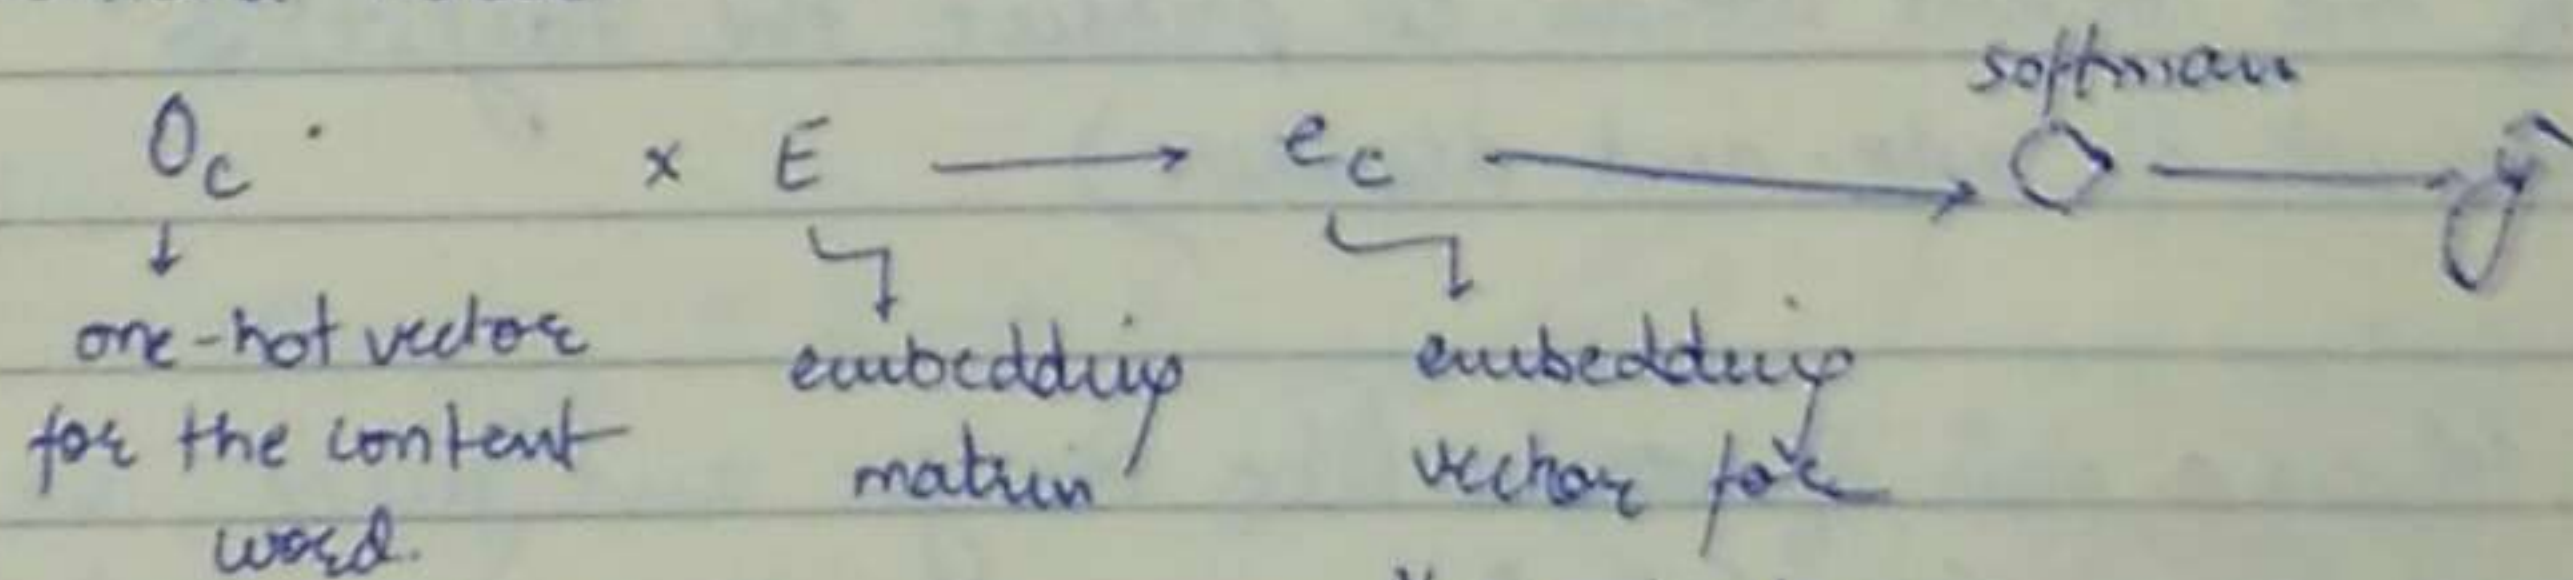 softmax
O_c · × E → e_c → ○ → ŷ
one-hot vector
for the context
word.
embedding
matrix
embedding
vector for